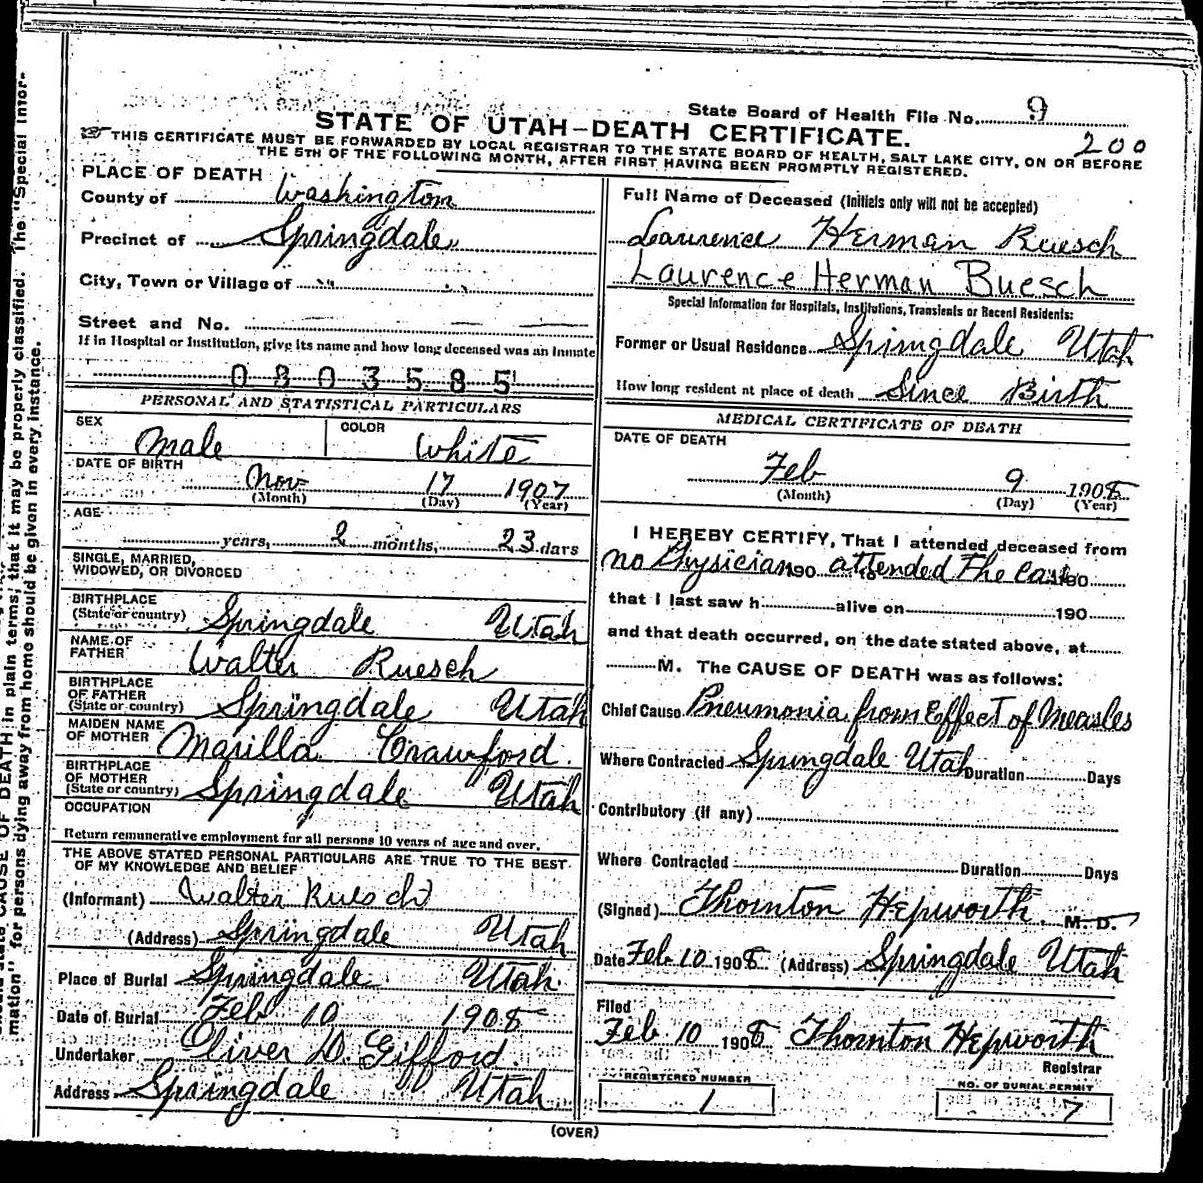 State Board of Health File No. 9
200
STATE OF UTAH—DEATH CERTIFICATE.
THIS CERTIFICATE MUST BE FORWARDED BY LOCAL REGISTRAR TO THE STATE BOARD OF HEALTH, SALT LAKE CITY, ON OR BEFORE
THE 5TH OF THE FOLLOWING MONTH, AFTER FIRST HAVING BEEN PROMPTLY REGISTERED.
PLACE OF DEATH
County of Washington
Precinct of Springdale
City, Town or Village of " "
Street and No.
If in Hospital or Institution, give its name and how long deceased was an inmate
0803585
PERSONAL AND STATISTICAL PARTICULARS
SEX Male COLOR White
DATE OF BIRTH Nov 17 1907
(Month) (Day) (Year)
AGE
years, 2 months, 23 days
SINGLE, MARRIED,
WIDOWED, OR DIVORCED
BIRTHPLACE
(State or country) Springdale Utah
NAME OF
FATHER Walter Ruesch
BIRTHPLACE
OF FATHER
(State or country) Springdale Utah
MAIDEN NAME
OF MOTHER Marilla Crawford.
BIRTHPLACE
OF MOTHER
(State or country) Springdale Utah
OCCUPATION
Return remunerative employment for all persons 10 years of age and over.
THE ABOVE STATED PERSONAL PARTICULARS ARE TRUE TO THE BEST
OF MY KNOWLEDGE AND BELIEF
(Informant) Walter Ruesch
(Address) Springdale Utah
Place of Burial Springdale Utah.
Date of Burial Feb 10 1908
Undertaker Oliver D. Gifford.
Address Springdale Utah
Full Name of Deceased (Initials only will not be accepted)
Laurence Herman Ruesch
Laurence Herman Buesch
Special Information for Hospitals, Institutions, Transients or Recent Residents:
Former or Usual Residence Springdale Utah
How long resident at place of death Since Birth
MEDICAL CERTIFICATE OF DEATH
DATE OF DEATH
Feb 9 1908
(Month) (Day) (Year)
I HEREBY CERTIFY, That I attended deceased from
no Physician 190 to attended The Case 190
that I last saw h alive on 190
and that death occurred, on the date stated above, at
M. The CAUSE OF DEATH was as follows:
Chief Cause Pneumonia from Effect of Measles
Where Contracted Springdale Utah Duration Days
Contributory (if any)
Where Contracted Duration Days
(Signed) Thornton Hepworth M. D.
Date Feb 10 1908 (Address) Springdale Utah
Filed
Feb. 10 1908 Thornton Hepworth
Registrar
REGISTERED NUMBER
1
NO. OF BURIAL PERMIT
7
(OVER)
CAUSE OF DEATH in plain terms, that it may be properly classified. The "Special Infor-
mation" for persons dying away from home should be given in every instance.